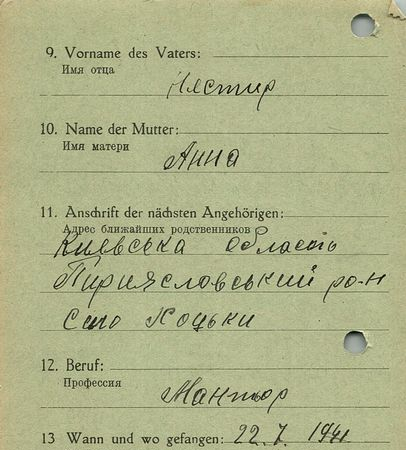 9. Vorname des Vaters:
Имя отца
Нестир
10. Name der Mutter:
Имя матери
Анна
11. Anschrift der nächsten Angehörigen:
Адрес ближайших родственников
Киевська область
Пириясловський ро-н
Село Хоцьки
12. Beruf:
Профессия
Мантьор
13 Wann und wo gefangen: 22.7. 1941